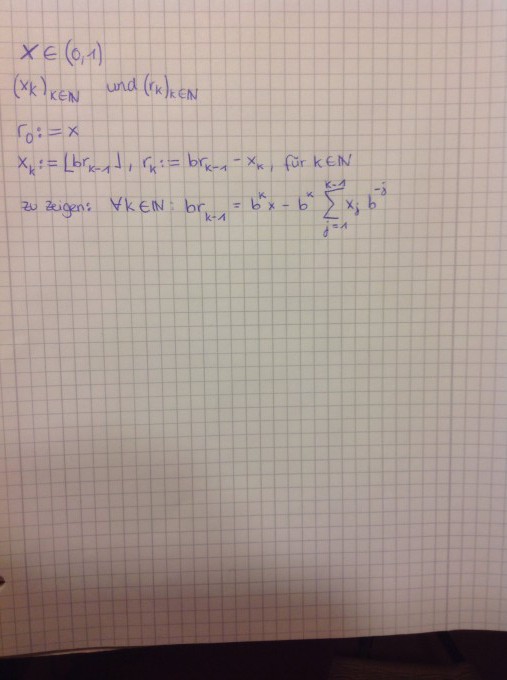 x ∈ (0,1)
(x_k)_{k∈ℕ} und (r_k)_{k∈ℕ}
r_0 := x
x_k := ⌊br_{k-1}⌋, r_k := br_{k-1} - x_k, für k∈ℕ
zu zeigen: ∀k∈ℕ: br_{k-1} = b^k x - b^k ∑_{j=1}^{k-1} x_j b^{-j}